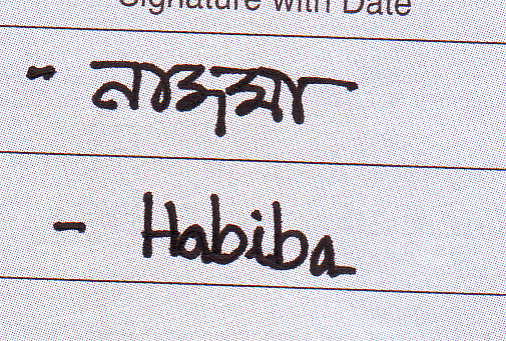 Signature with Date
- নাজমা
- Habiba